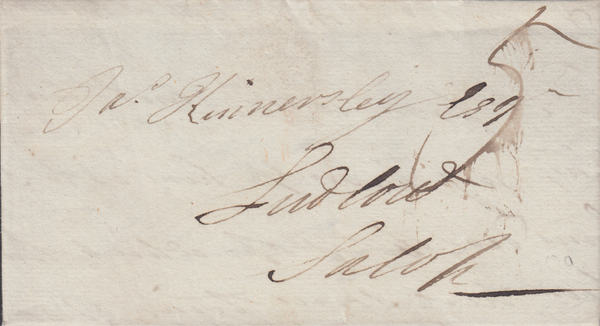 Jas. Kinnersley Esqr
Ludlow
Salop